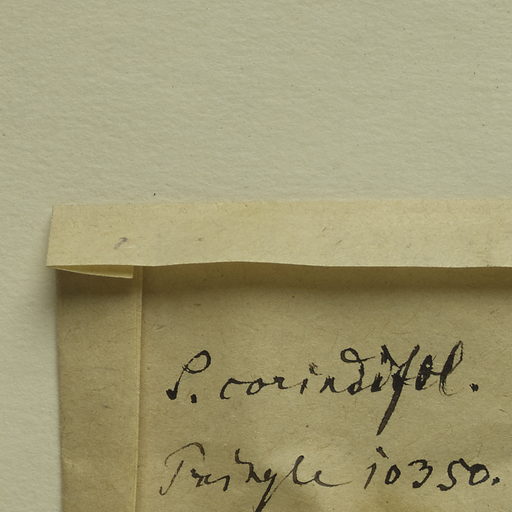 S. corindifol.
Pringle 10350.